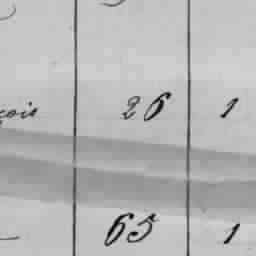 çois 26 1
65 1